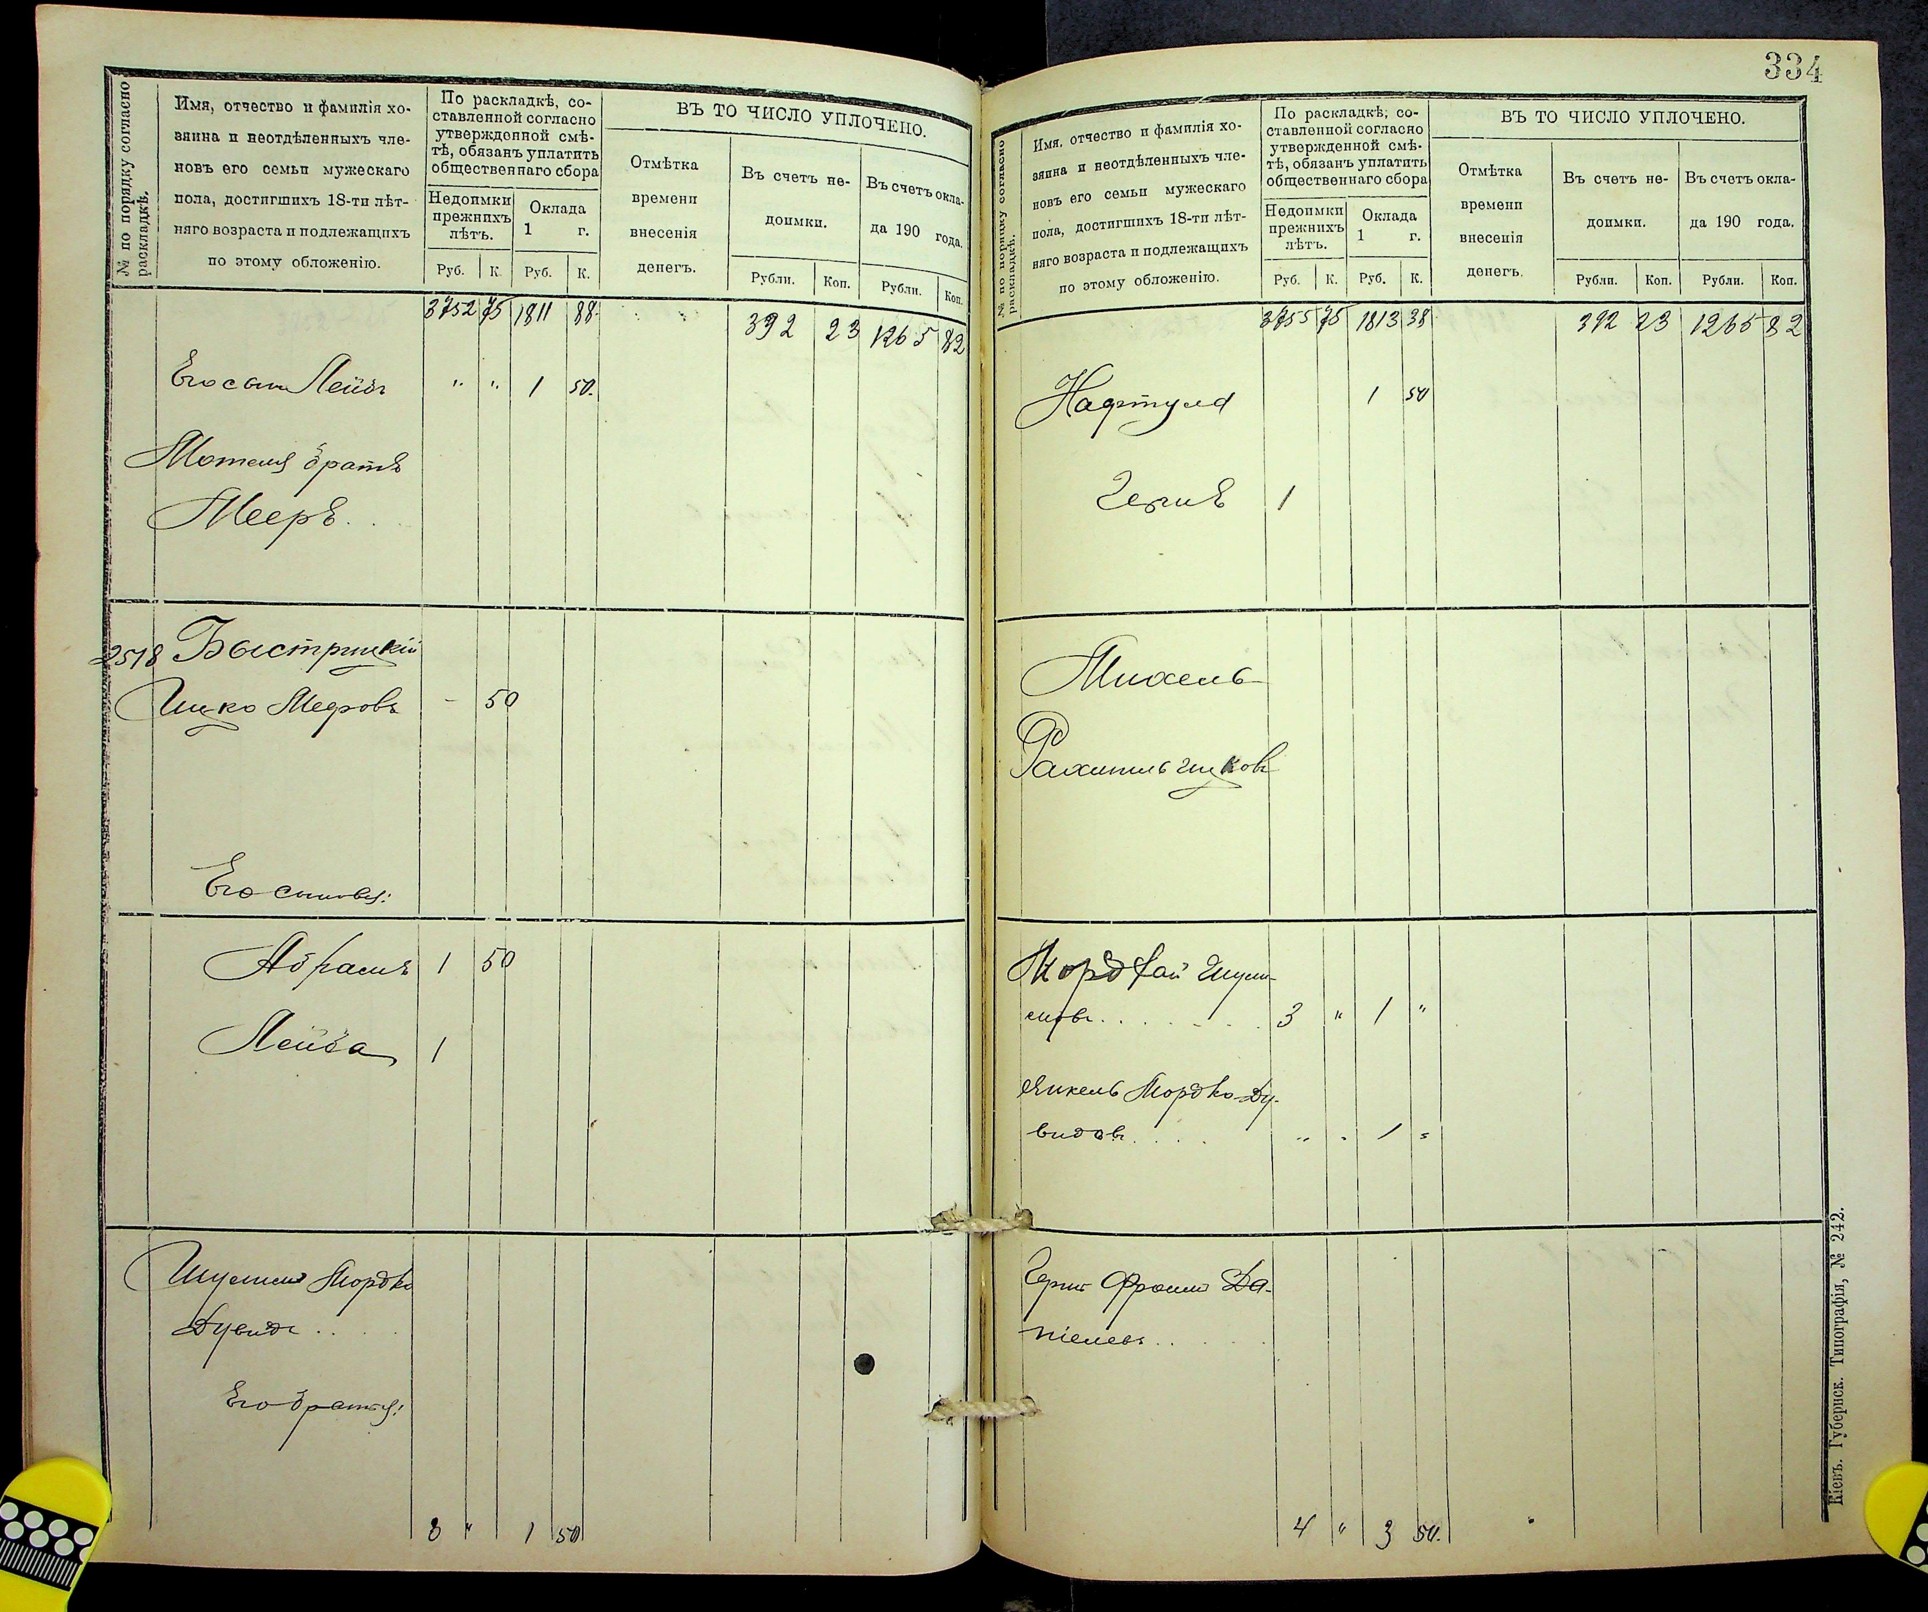 334
№ по порядку согласно раскладкѣ.
Имя, отчество и фамилія хо-
зяина и неотдѣленныхъ чле-
новъ его семьи мужескаго
пола, достигшихъ 18-ти лѣт-
няго возраста и подлежащихъ
по этому обложенію.
По раскладкѣ, со-
ставленной согласно
утвержденной смѣ-
тѣ, обязанъ уплатить
общественнаго сбора
Недоимки
прежнихъ
лѣтъ.
Оклада
1 г.
Руб. К. Руб. К.
ВЪ ТО ЧИСЛО УПЛОЧЕНО.
Отмѣтка
времени
внесенія
денегъ.
Въ счетъ не-
доимки.
Въ счетъ окла-
да 190 года.
Рубли. Коп. Рубли. Коп.
3752 75 1811 88 392 23 1265 82
Его сынъ Лейбъ " " 1 50
Мотеля братъ
Мееръ
2518 Быстрицкій
Ицко Мееровъ - 50
Его сыновья:
Абрамъ 1 50
Лейба 1
Шулимъ Мордко
Дувидъ
Его братья:
3 " 1 50
№ по порядку согласно раскладкѣ.
Имя, отчество и фамилія хо-
зяина и неотдѣленныхъ чле-
новъ его семьи мужескаго
пола, достигшихъ 18-ти лѣт-
няго возраста и подлежащихъ
по этому обложенію.
По раскладкѣ, со-
ставленной согласно
утвержденной смѣ-
тѣ, обязанъ уплатить
общественнаго сбора
Недоимки
прежнихъ
лѣтъ.
Оклада
1 г.
Руб. К. Руб. К.
ВЪ ТО ЧИСЛО УПЛОЧЕНО.
Отмѣтка
времени
внесенія
денегъ.
Въ счетъ не-
доимки.
Въ счетъ окла-
да 190 года.
Рубли. Коп. Рубли. Коп.
3755 75 1813 38 392 23 1265 82
Нафтула 1 50
Гершъ 1
Михель
Рахмиль Ицковъ
Мордхай Шули-
мовъ 3 " 1 "
Янкель Мордко-Ду-
видовъ " " 1 "
Гершъ Фроимъ Да-
ніелевъ
4 " 3 50
Кіевъ. Губернск. Типографія, № 242.